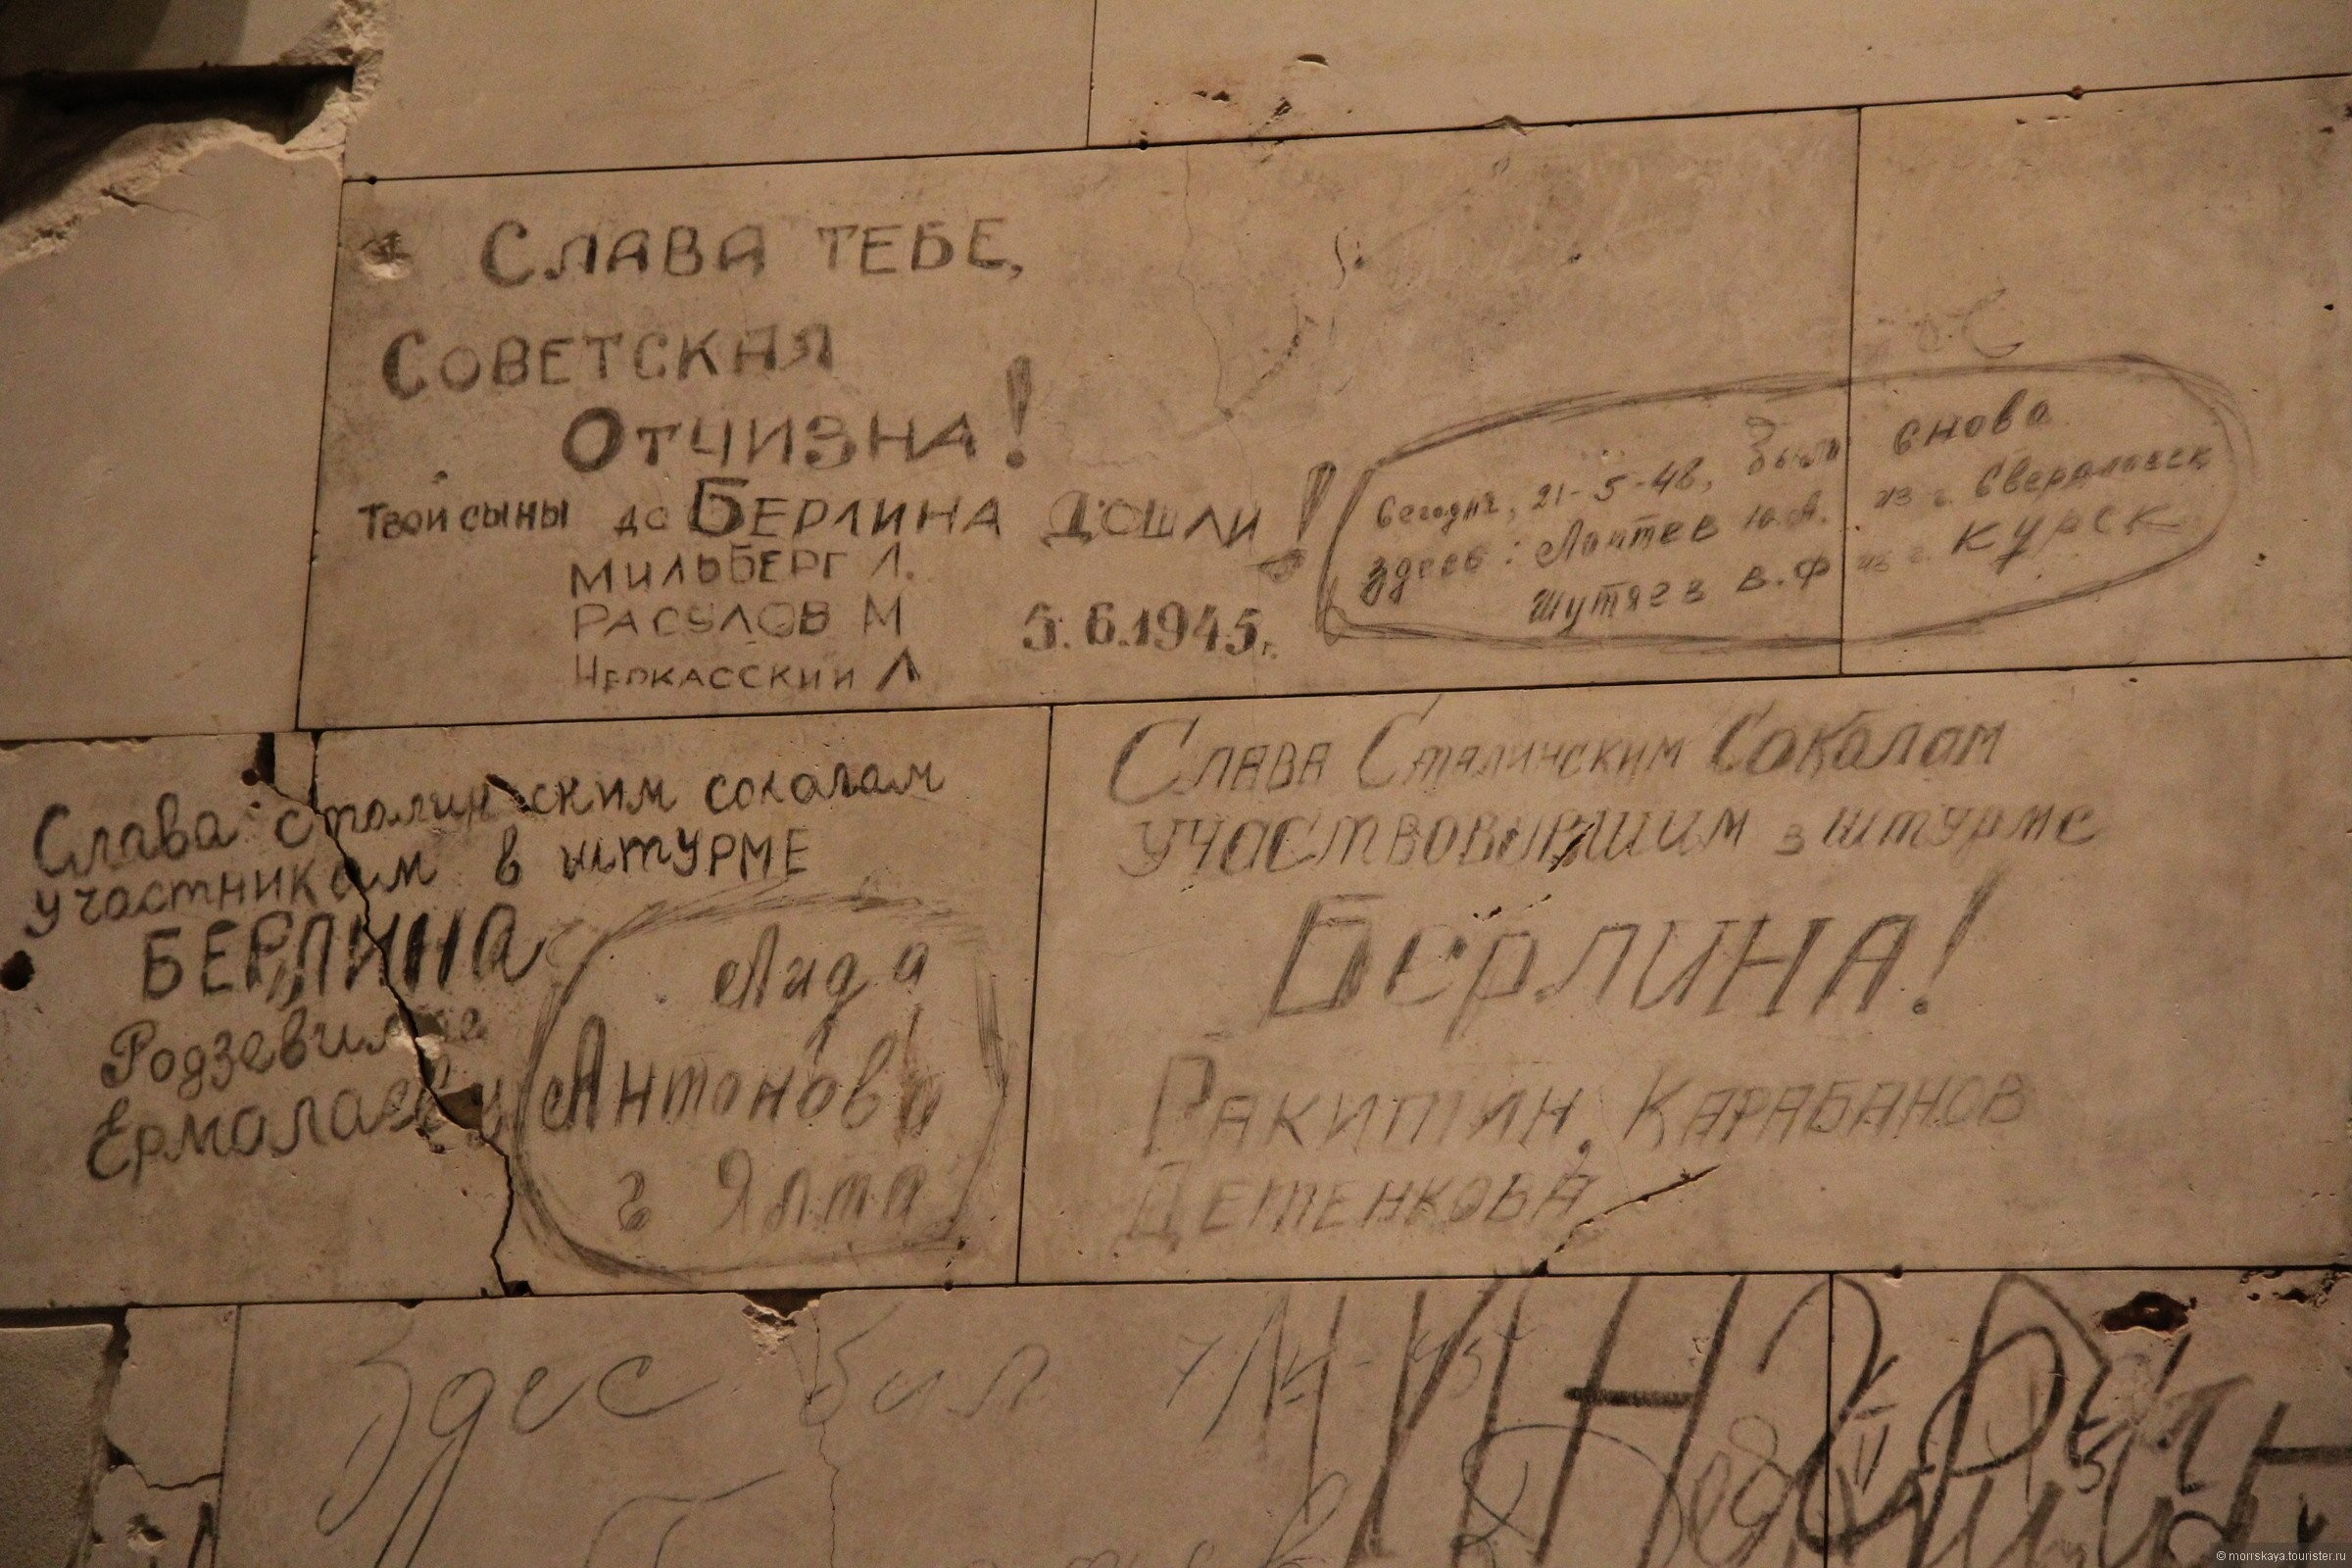 Слава тебе,
Советская
Отчизна!
Твои сыны до Берлина дошли!
Мильберг Л.
Расулов М
Черкасский Л
5.6.1945г.
Сегодня, 21-5-48, были снова
здесь: Лаптев Ю.А. из г. Свердловск
Шутяев В.Ф из г. Курск
Слава сталинским соколам
участникам в штурме
БЕРЛИНА
Ермолаев
Лида
Антонова
г Ялта
Слава Сталинским Соколам
участвовавшим в штурме
Берлина!
Ракитин, Карабанов
Детенкова
Здес бил
© morrskaya.tourister.ru